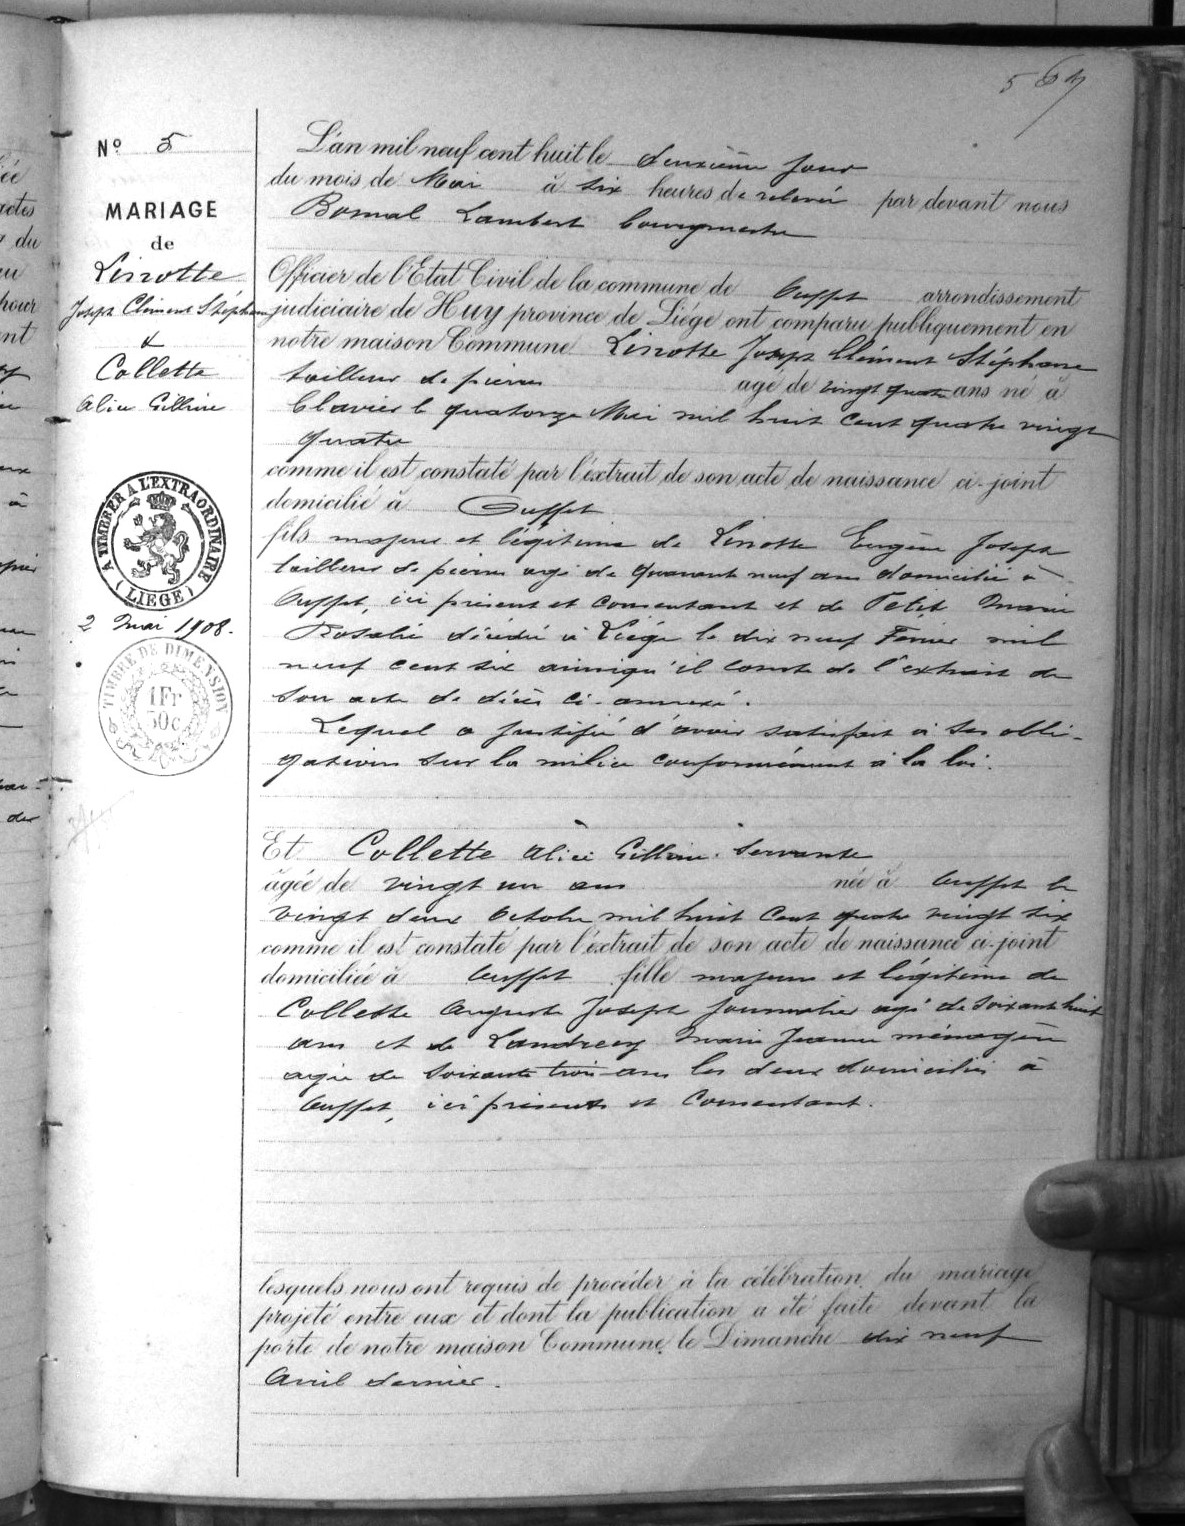 564
Nº 5
MARIAGE
de
Linotte
Joseph Clément Stéphane
&
Collette
Alice
A TIMBRER A L'EXTRAORDINAIRE
(LIEGE)
2 Mai 1908.
TIMBRE DE DIMENSION
1Fr
50c
L'an mil neuf cent huit le deuxième jour
du mois de Mai à six heures de relevée par devant nous
Bomal Lambert bourgmestre
Officier de l'Etat Civil de la commune de Ouffet arrondissement
judiciaire de Huy province de Liége ont comparu publiquement en
notre maison Commune Linotte Joseph Clément Stéphane
tailleur de pierres agé de vingt quatre ans né à
Clavier le quatorze Mai mil huit cent quatre vingt
quatre
comme il est constaté par l'extrait de son acte de naissance ci-joint
domicilié à Ouffet
fils majeur et légitime de Linotte Eugène Joseph
tailleur de pierres agé de quarante neuf ans domicilié à
Ouffet, ici présent et consentant et de Petit Marie
Rosalie décédée à Liége le dix neuf Février mil
neuf cent six ainsiqu'il conste de l'extrait de
son acte de décès ci-annexé.
Lequel a justifié d'avoir satisfait à ses obli-
gations sur la milice conformément à la loi.
Et Collette Alice servante
âgée de vingt un ans née à Ouffet le
vingt deux Octobre mil huit cent quatre vingt six
comme il est constaté par l'extrait de son acte de naissance ci-joint
domiciliée à Ouffet fille majeure et légitime de
Collette Auguste Joseph journalier agé de soixante huit
ans et de Landrecy Marie Jeanne ménagère
agée de soixante trois ans les deux domiciliés à
Ouffet, ici présents et consentant.
lesquels nous ont requis de procéder à la célébration du mariage
projeté entre eux et dont la publication a été faite devant la
porte de notre maison Commune, le Dimanche dix neuf
Avril dernier.